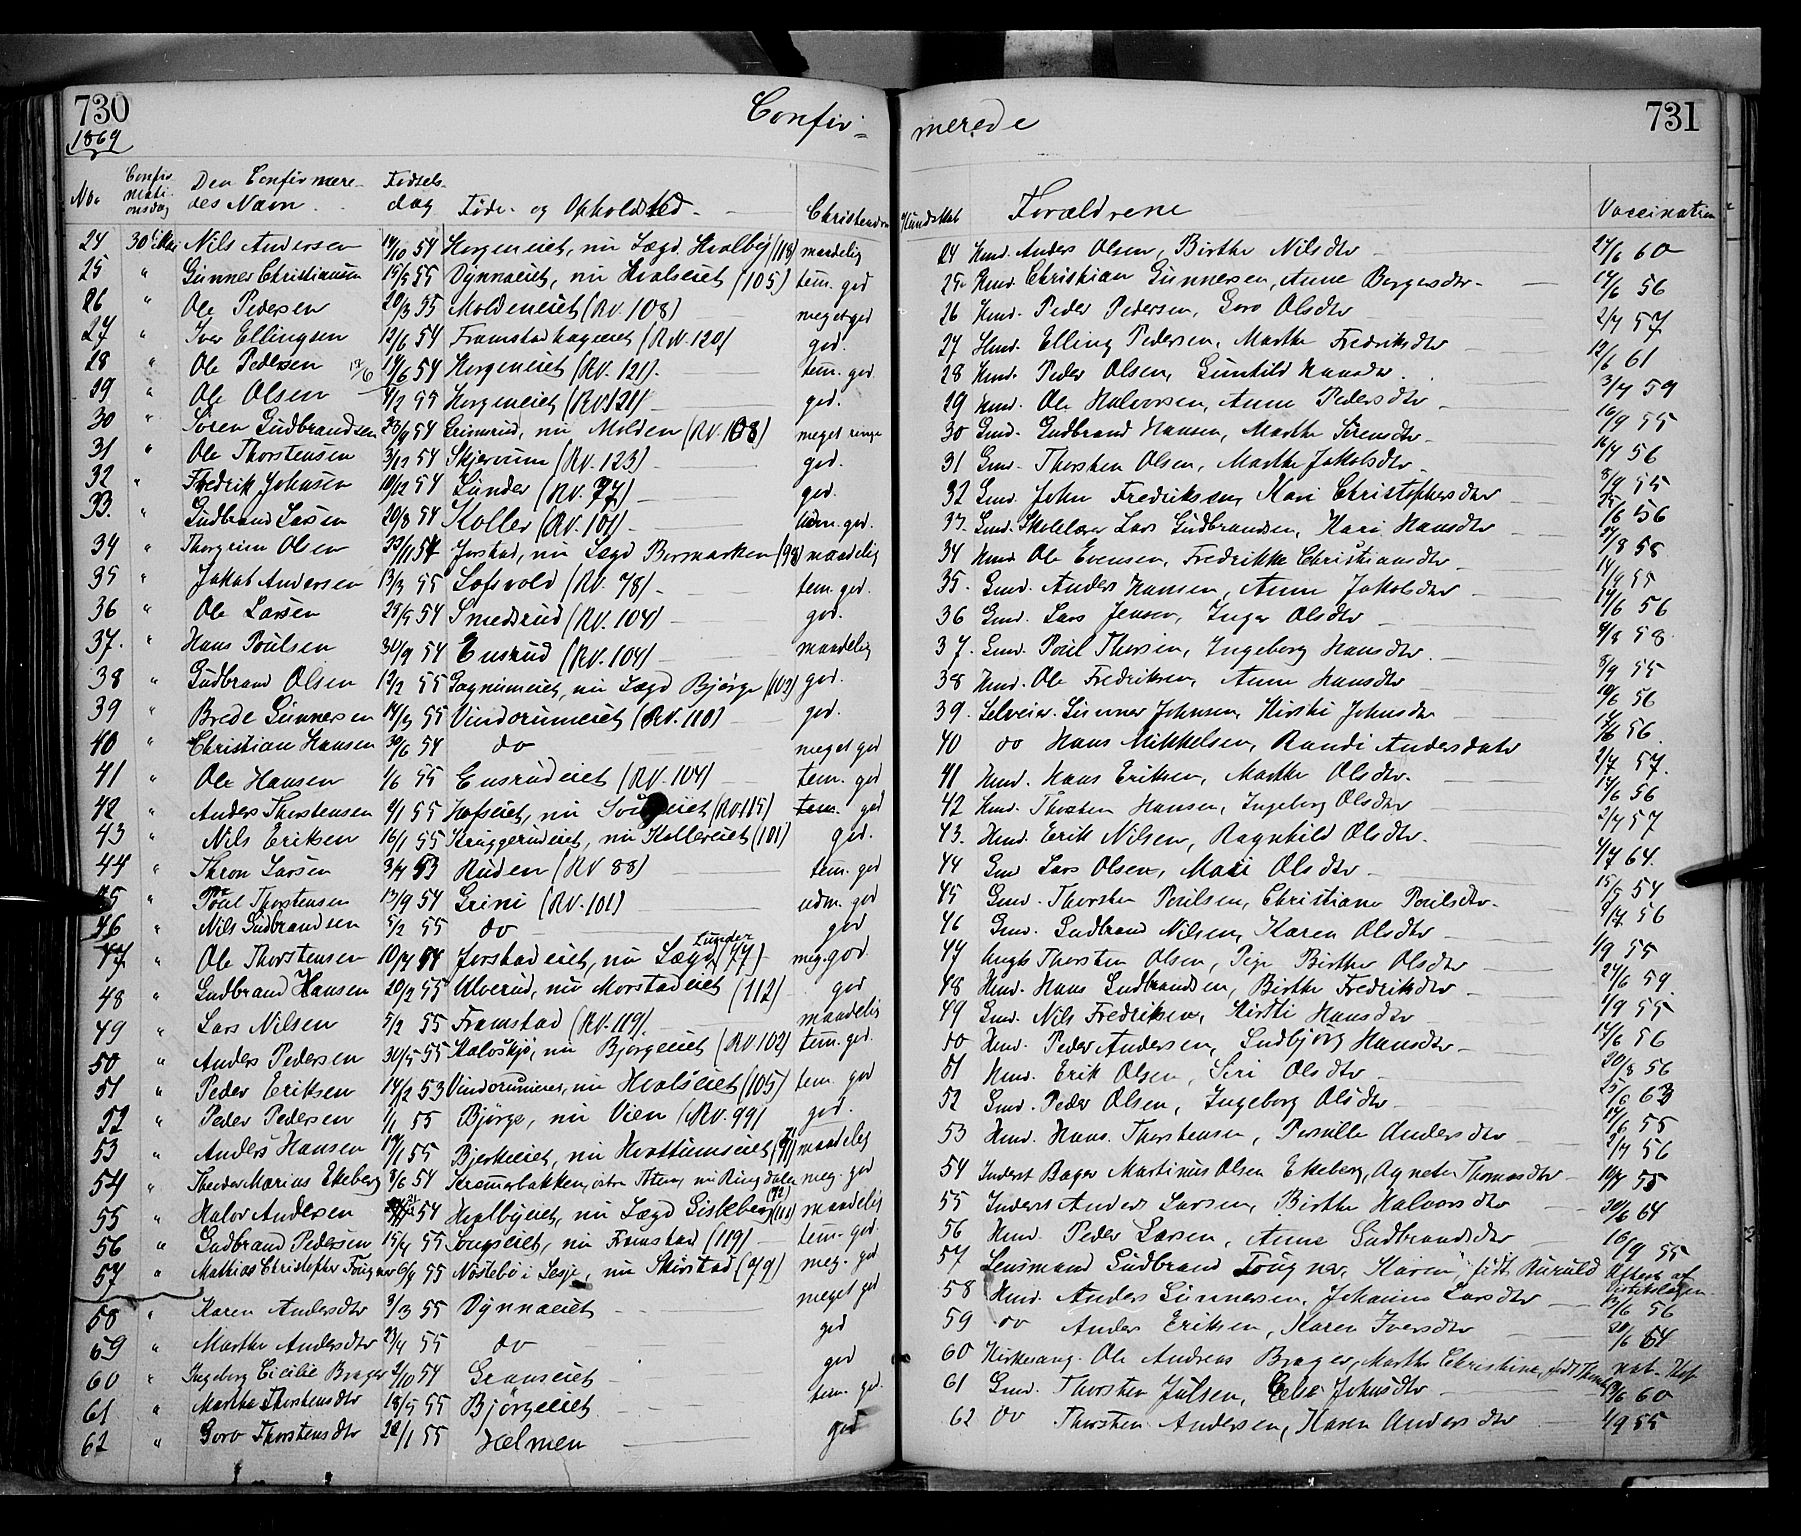 730
1869
Confir-
No. Confirmationsdag Den Confirmeredes Navn Fødselsdag Føde- og Opholdsted Christendoms
24 30te Mai Nils Andersen 17/10 54 Horgeneiet, nu Lægd Hvalby (118) maadelig
25 " Gunner Christiansen 15/5 55 Dynnaeiet, nu Hvalseiet (105) tem. god
26 " Ole Pedersen 20/3 55 Moldeneiet (RV. 108) meget god
27 " Iver Ellingsen 12/6 54 Framstadhageneiet (RV. 120) god.
28 " Ole Pedersen 17/6 54 Horgeneiet (RV. 121) tem. god
29 " Ole Olsen 4/2 55 Horgeneiet (RV 121) god.
30 " Søren Gudbrandsen 23/9 54 Grimsrud, nu Molden (RV. 108) meget ringe
31 " Ole Thorstensen 3/12 54 Skjervum (RV. 123) god.
32 " Fredrik Johnsen 10/12 54 Lunder (RV. 77) god.
33. " Gudbrand Larsen 20/8 54 Koller (RV. 101) udm. god.
34 " Thorgrim Olsen 23/11 54 Jorstad, nu Lægd Bermarken (98) maadelig
35 " Jakob Andersen 13/3 55 Lofsvold (RV. 78) tem. god.
36 " Ole Larsen 25/9 54 Smedsrud (RV. 104) god.
37. " Hans Poulsen 30/9 54 Eusrud (RV. 104) maadelig
38 " Gudbrand Olsen 12/2 55 Gagnumeiet, nu Lægd Bjørge (102) god.
39 " Brede Gunnersen 14/3 55 Vindorumeiet (RV. 110) god.
40 " Christian Hansen 30/6 54 do meget god
41 " Ole Hansen 1/6 55 Eusrudeiet (RV. 104) tem. god
42 " Anders Thorstensen 9/1 55 Hofseiet, nu (RV. 115) tem. god
43 " Nils Eriksen 16/1 55 Skuggerudeiet, nu Kollereiet (101) god.
44 " Thron Larsen 3/4 53 Ruden (RV 88) tem. god
45 " Poul Thorstensen 13/9 54 Grini (RV. 101) udm. god
46 " Nils Gudbrandsen 5/2 55 do god
47 " Ole Thorstensen 10/4 54 Jorstadeiet, nu Lægd Lunder (77) meg. god.
48 " Gudbrand Hansen 20/2 55 Ulverud, nu Morstadeiet (112) god
49 " Lars Nilsen 5/2 55 Framstad (RV. 119). maadelig
50 " Anders Pedersen 30/5 55 Kaloskjø, nu Bjørgeeiet (RV. 102) tem. god.
51 " Peder Eriksen 14/2 53 Vindorumeiet, nu Hvalseiet (105) tem. god
52 " Peder Pedersen 1/1 55 Bjørge, nu Vien (RV. 99) god.
53 " Anders Hansen 17/1 55 Bjerkeeiet, nu Hvattumseiet (91) maadelig
54 " Theodor Marius Ekeberg 3/6 54 Kræmmerbakken, østre Toten, nu Ringdalen (72) meg. god
55 " Halvor Andersen 54 Hvalbyeiet, nu Lægd Gisleberg (111) maadelig
56 " Gudbrand Pedersen 15/4 55 Sougseiet, nu Framstad (119) tem. god.
57 " Mathias Christopher Fougner 6/4 55 Nostebø i Lesje, nu Skirstad (a/9) meg. god
58 " Karen Andersdtr 3/3 55 Dynnaeiet meget god
59 " Marthe Andersdtr 23/4 55 do god
60 " Ingeborg Cicilie Brager 2/10 54 Granseiet god
61 " Marthe Thorstensdtr 18/5 55 Bjørgeeiet tem. god
62 " Goro Thorstensdtr 22/1 55 Helmen god
731
merede
Kundskab Forældrene Vaccination
24 Hmd. Anders Olsen, Birthe Nilsdtr 27/6 60
25. Hmd. Christian Gunnersen, Anne Borgersdtr 17/6 56
26 Hmd. Peder Pedersen, Goro Olsdtr 2/7 57
27 Hmd. Elling Pedersen, Marthe Fredriksdtr 12/6 61
28 Hmd. Peder Olsen, Gunhild Hansdtr. 3/7 59
29 Hmd. Ole Halvorsen, Anne Pedersdtr 16/9 55
30 Gmd. Gudbrand Hansen, Marthe Sørensdtr 16/7 56
31 Gmd. Thorsten Olsen, Marthe Jakobsdtr 8/9 55
32 Gmd. John Fredriksen, Kari Christophersdtr 25/6 56
33. Gmd. Skolelærer Lars Gudbrandsen, Kari Hansdtr 27/8 58
34 Hmd Ole Evensen, Fredrikke Christiansdtr 14/9 55
35. Gmd. Anders Hansen, Anne Jakobsdtr 17/6 56
36 Gmd. Lars Jensen, Inger Olsdtr 9/8 58
37. Gmd. Poul Thorsen, Ingeborg Hansdtr 8/9 55
38 Hmd. Ole Fredriksen, Anne Hansdtr 10/6 56
39. Selveier Gunner Johnsen, Kirsti Johnsdtr 17/6 56.
40 do Hans Mikkelsen, Randi Andersdatr 2/7 57.
41 Hmd. Hans Eriksen, Marthe Olsdtr. 17/6 56
42 Hmd. Thorsten Hansen, Ingeborg Olsdtr 2/7 57
43. Hmd. Erik Nilsen, Ragnhild Olsdtr. 4/7 64.
44 Gmd Lars Olsen, Mari Olsdtr 15/5 54
45 Gmd. Thorsten Poulsen, Christiane Poulsdtr. 9/7 56
46 Gmd. Gudbrand Nilsen, Karen Olsdtr 1/9 55
47 Ungk Thorsten Olsen, Pige Birthe Olsdtr 27/6 59.
48 Hmd. Hans Gudbrandsen, Birthe Fredriksdtr 1/9 55
49 Gmd. Nils Fredriksen, Kirsti Hansdtr 17/6 56
50 Hmd. Peder Andersen, Gudbjørg Hansdtr 20/8 56
51 Hmd. Erik Olsen, Siri Olsdtr 25/6 63
52 Gmd. Peder Olsen, Ingeborg Olsdtr 17/6 55
53 Hmd. Hans Thorstensen, Pernille Andersdtr 2/7 56
54 Inderst Bager Martinus Olsen Ekeberg, Agnete Thomasdtr 10/7 55
55 Inderst Anders Larsen, Birthe Halvorsdtr 30/6 64
56 Hmd. Peder Larsen, Anne Gudbrandsdtr 16/9 55
57 Lensmand Gudbrand Fougner, Karen, født Ruruld Attest af Distriktslægen
58 Hmd. Anders Gunnersen, Johanne Larsdtr 17/6 56
59 do Anders Eriksen, Karen Iversdtr 20/6 64
60 Kirkesang. Ole Andreas Brager, Marthe Christine, født nat. Kop.
61 Gmd. Thorsten Julsen, Eline Johnsdtr 19/6 60
62 do Thorsten Andersen, Karen Andersdtr 1/9 55